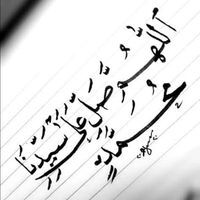 اللَّهُمَّ صَلِّ عَلَى سَيِّدِنَا
مُحَمَّدٍ